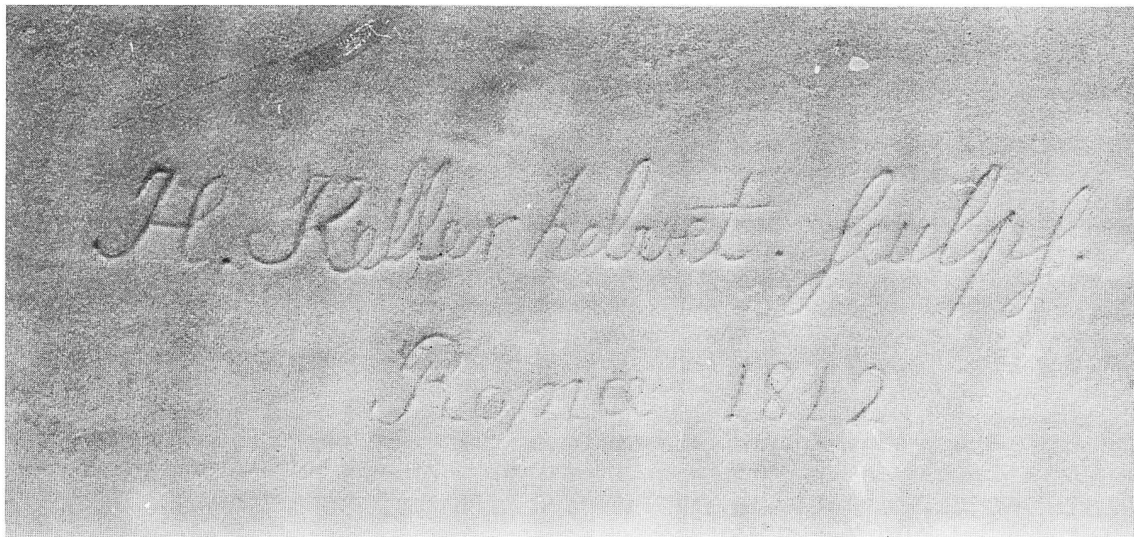 H. Keller helvet. ſculpſ.
Romæ 1812